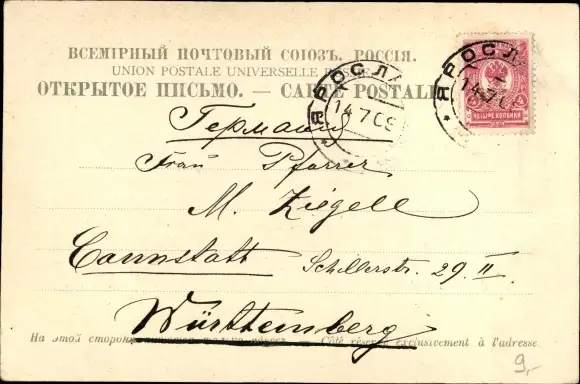 ВСЕМІРНЫЙ ПОЧТОВЫЙ СОЮЗЪ. РОССІЯ.
UNION POSTALE UNIVERSELLE
ОТКРЫТОЕ ПИСЬМО. — CARTE POSTALE
ЯРОСЛА
14 7 09
ЯРОСЛ
14 7 0
ЧЕТЫРЕ КОПѢЙКИ
Германія
Frau Pfarrer
M. Ziegele
Cannstatt Schillerstr. 29. II.
Württemberg
На этой сторонѣ — Côté réservé exclusivement à l'adresse.
9,-